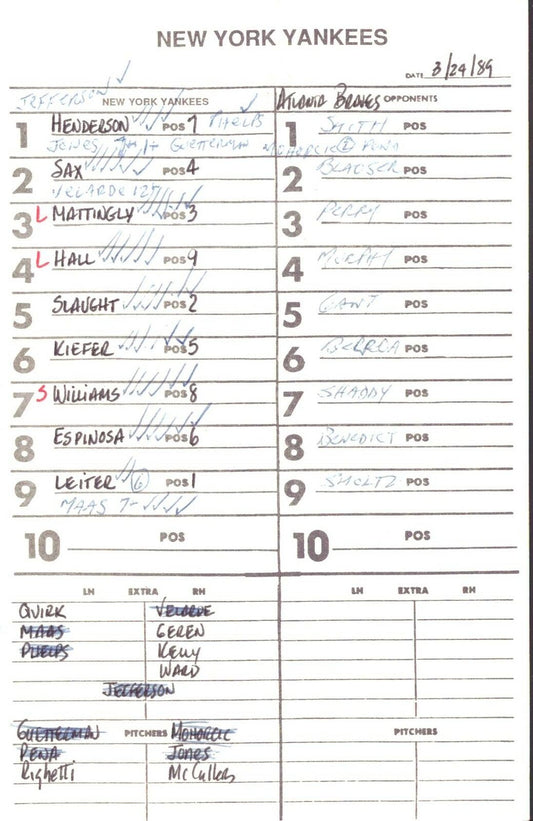 NEW YORK YANKEES
DATE 3/24/89
JEFFERSON NEW YORK YANKEES
ATLANTA BRAVES OPPONENTS
1 HENDERSON POS 7 PHELPS
1 SMITH POS
JONES GUETTERMAN MOHORCIC PENA
2 SAX POS 4
2 BLAUSER POS
VELARDE 127
3 L MATTINGLY POS 3
3 PERRY POS
4 L HALL POS 9
4 MURPHY POS
5 SLAUGHT POS 2
5 GANT POS
6 KIEFER POS 5
6 BERROA POS
7 S WILLIAMS POS 8
7 SHADDY POS
8 ESPINOSA POS 6
8 BENEDICT POS
9 LEITER 6 POS 1
9 SMOLTZ POS
MAAS 7-
10 POS
10 POS
LH EXTRA RH
LH EXTRA RH
QUIRK VELARDE
MAAS GEREN
PHELPS KELLY
WARD
JEFFERSON
GUETTERMAN PITCHERS MOHORCIC
PITCHERS
PENA JONES
Righetti McCullers